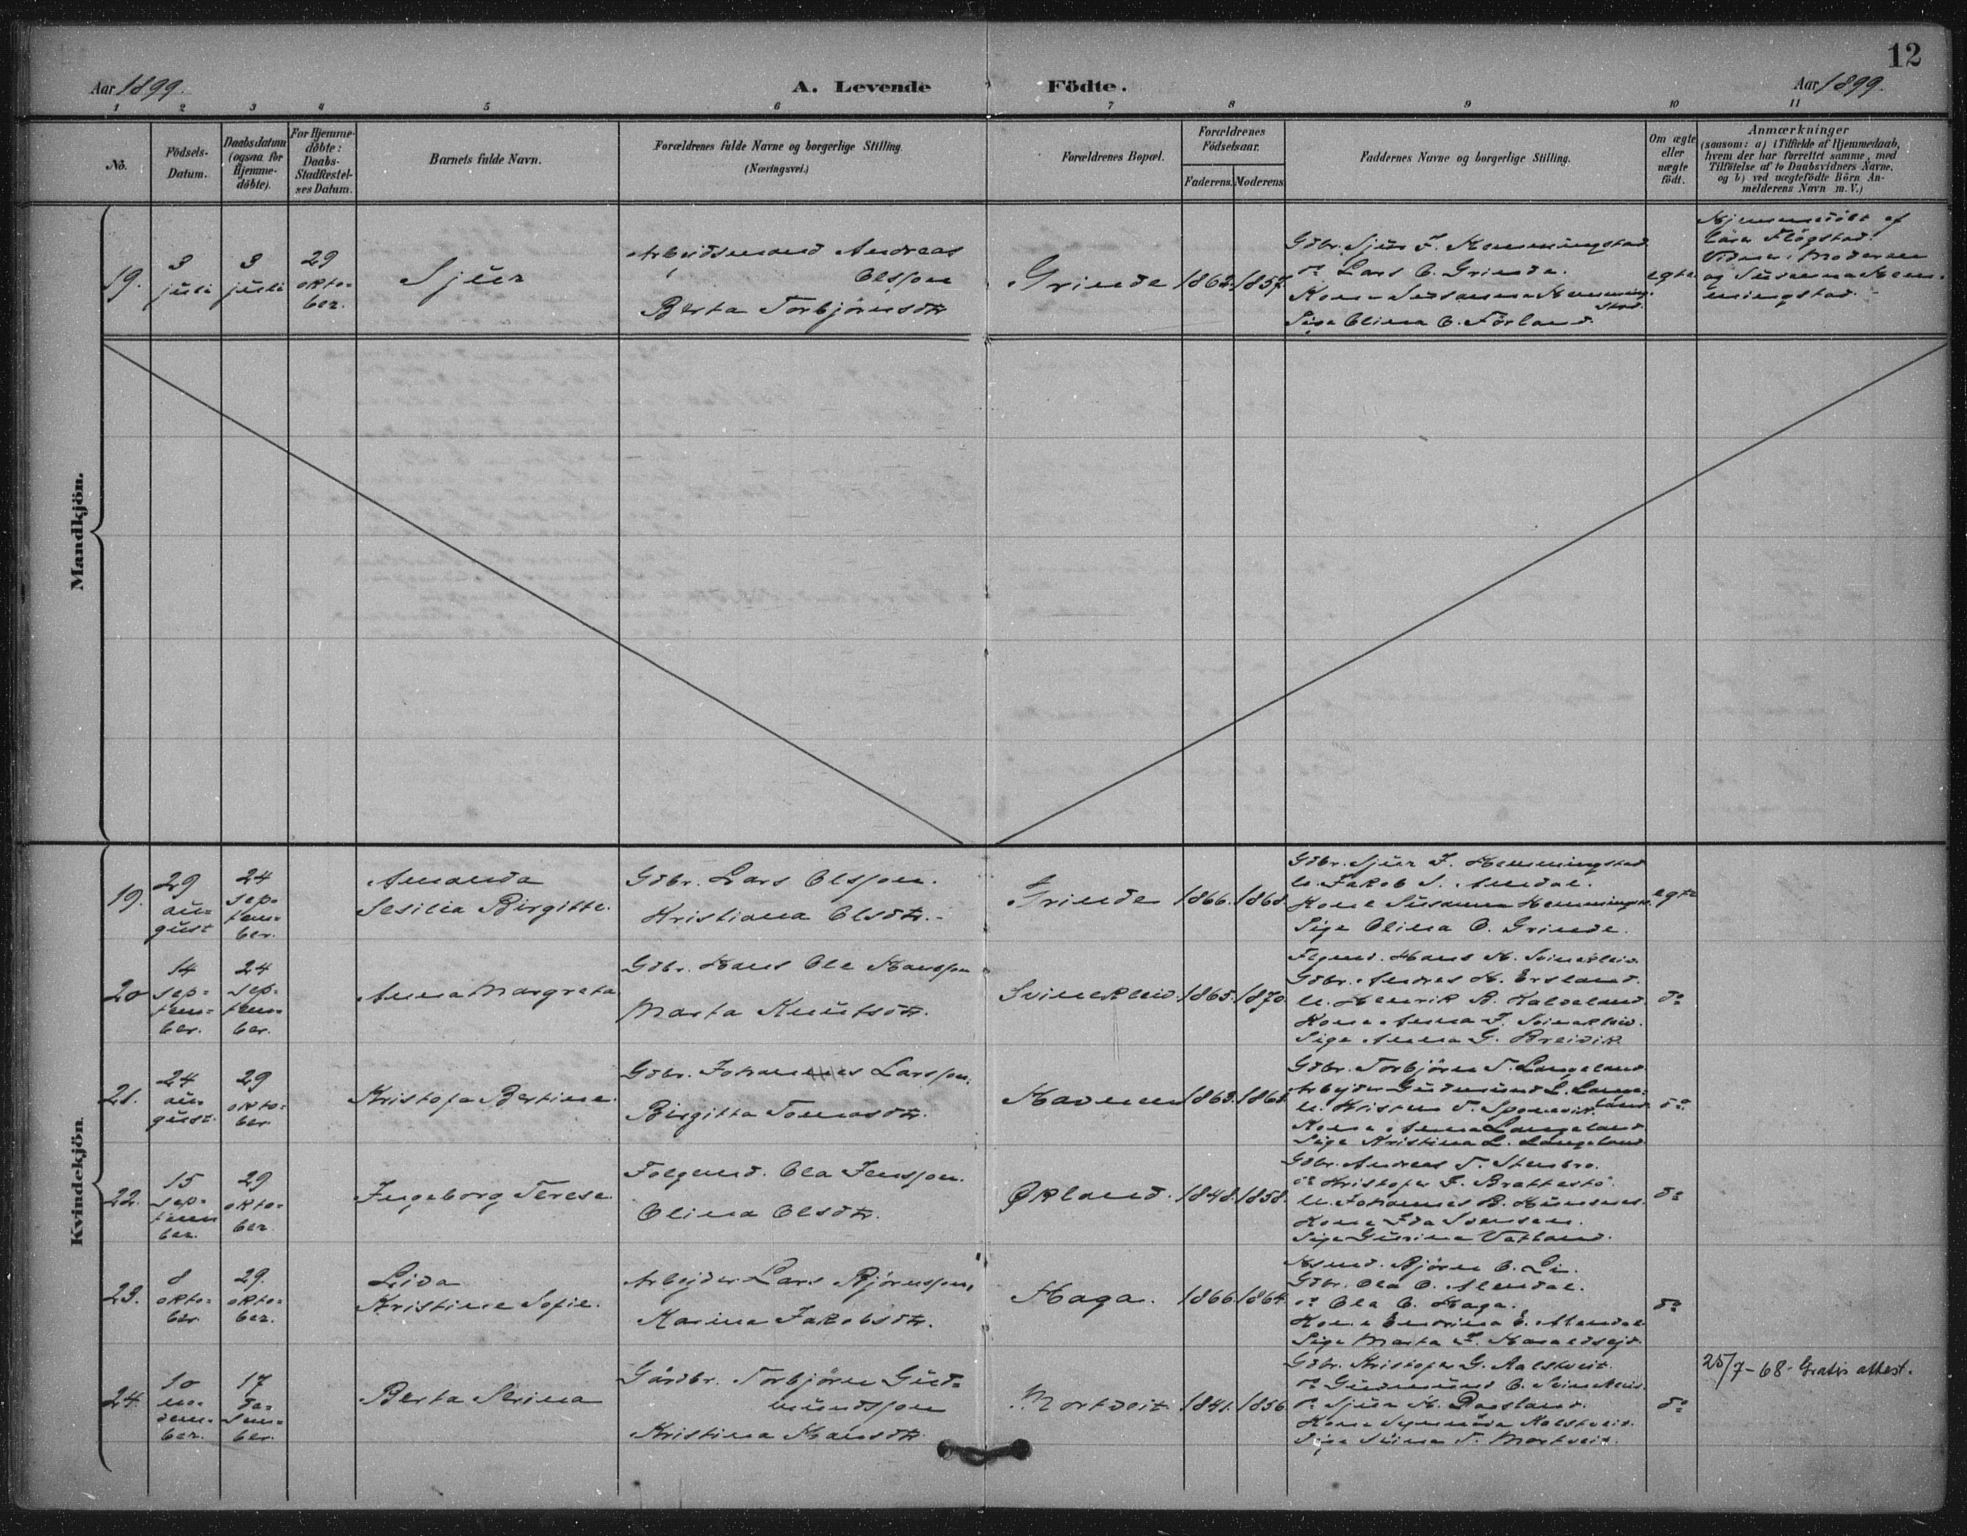 12
Aar 1899.
A. Levende
Födte.
Aar 1899.
1 2 3 4 5 6 7 8 9 10 11
No.
Födsels-
Datum.
Daabsdatum
(ogsaa for
Hjemme-
döbte).
For Hjemme-
döbte:
Daabs-
Stadfæstel-
ses Datum.
Barnets fulde Navn.
Forældrenes fulde Navne og borgerlige Stilling.
(Næringsvei.)
Forældrenes Bopæl.
Forældrenes
Födselsaar.
Faderens. Moderens.
Faddernes Navne og borgerlige Stilling.
Om ægte
eller
uægte
födt.
Anmærkninger
(saasom: a) i Tilfælde af Hjemmedaab,
hvem der har forrettet samme, med
Tilföielse af to Daabsvidners Navne,
og b) ved uægtefödte Börn An-
melderens Navn m. V.)
Mandkjön.
19.
3
juli
3
juli
29
okto-
ber.
Sjur
Arbeidsmand Andreas
Olsson
Berta Torbjörnsdtr
Grinde
1862. 1857.
Gdbr. Sjur F. Hemmingstad
do Lars O. Grinde.
Kone Susanna Hemming-
stad.
Pige Olina O. Förland.
egte
Hjemmedöbt af
Flögstad.
Vidner: Moderen
og Susanna Hem-
mingstad.
Kvindekjön.
19.
29
au-
gust
24
sep-
tem-
ber.
Amanda
Sesilia Birgitte.
Gdbr. Lars Olsson.
Kristiana Olsdtr.
Grinde
1866. 1868.
Gdbr. Sjur F. Hemmingstad
U. Jakob S. Amdal.
Kone Susanna Hemmingst.
Pige Olina O. Grinde.
egte
20
14
sep-
tem-
ber.
24
sep-
tem-
ber.
Anna Margreta
Gdbr. Hans Ola Hansson
Marta Knutsdtr.
Svinekleiv. 1865. 1870.
Flgmd. Hans H. Svinekleiv.
Gdbr. Andres H. Ersland.
U. Henrik B. Kaldeland.
Kone Anna J. Svinekleiv.
Pige Anna G. Breivik.
do
21.
24
au-
gust.
29
okto-
ber
Kristofa Bertine.
Gdbr. Johannes Larsson.
Birgitta Tomasdtr.
1863. 1868.
Gdbr. Torbjörn T. Langeland
Arbejder Gudmund L. Lange-
land
U. Kristen T. Sponevik.
Kone Anna Langeland
Pige Kristina L. Langeland
do
22.
15
sep-
tem
ber.
29
okto-
ber.
Ingeborg Terese.
Folgemd. Ola Jensson.
Olina Olsdtr.
Økland. 1848. 1858.
Gdbr. Andreas T. Stensbro.
do Kristofer J. Brattestö.
U. Johannes B.
Kone Ida Svensen.
Pige Gurina Vatland.
do
23.
8
okto-
ber
29.
okto-
ber.
Lida
Kristine Sofie.
Arbejder Lars Björnsson.
Karina Jakobsdtr.
Haga. 1866. 1864.
Björn O. Li.
Gdbr. Ola O. Alendal.
do Ola O. Haga.
Kone Endrina E. Alendal
Pige Marta J. Haraldseid.
do
24.
10
no-
vem-
ber.
17
de-
sem-
ber.
Berta Serina
Gårdbr. Torbjörn Gud-
mundsson
Kristina Hansdtr.
Mortveit 1841. 1856.
Gdbr. Kristofer G. Aalstveit.
do Gudmund O.
do Sjur H. Baasland.
Kone Synnöva Aalstveit.
Pige Serina T. Mortveit.
do
25/7-68. Gratis attest.